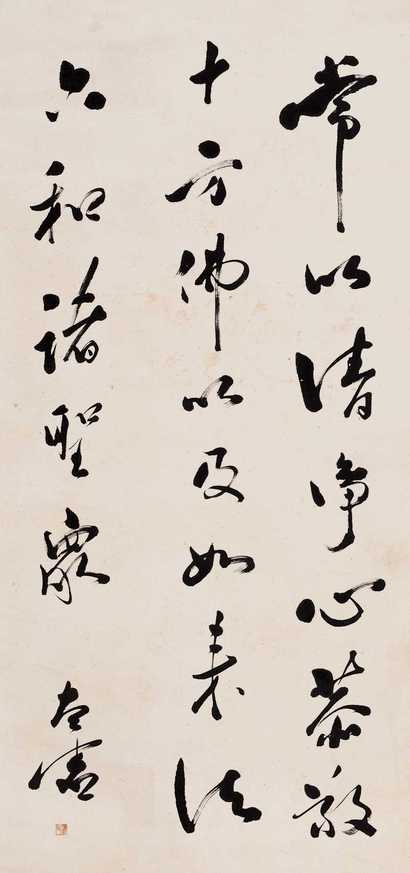 常以清淨心恭敬
十方佛以及如來法
六和諸聖眾
太虛